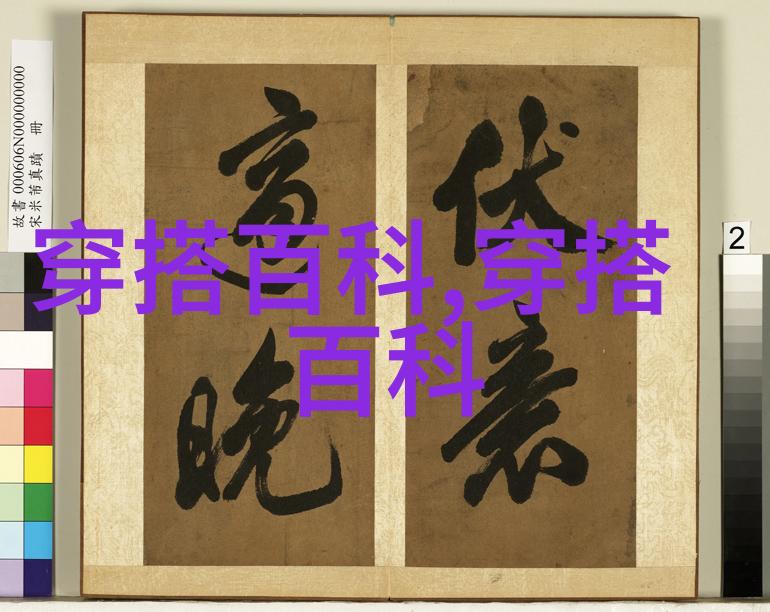 故書 000606N000000000
宋米芾真蹟 冊
伏
晚
穿搭百科,穿搭
百科
2